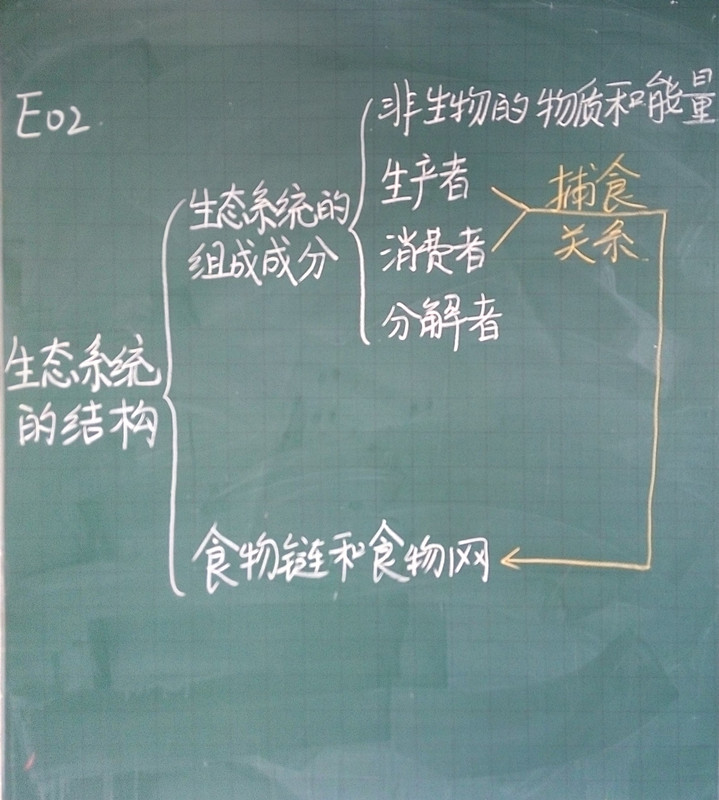 E02
非生物的物质和能量
生产者
消费者
分解者
捕食
关系
生态系统的
组成成分
生态系统
的结构
食物链和食物网